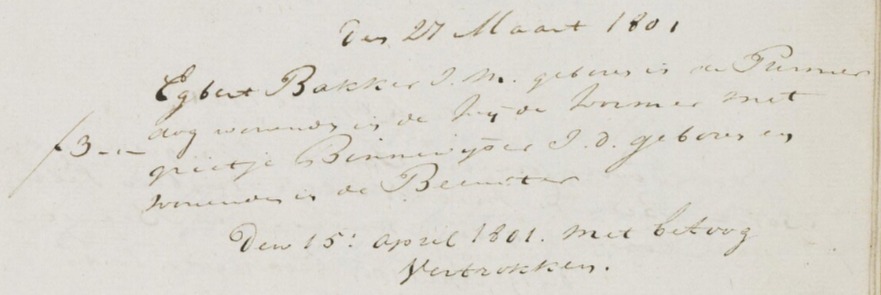 Den 27 Maart 1801
Egbert Bakker J. M. geboren in de Purmer
dog wonende in de Wormer met
f3-„- grietje J. d. geboren en
wonende in de Beemster
Den 15: april 1801. met betoog
Vertrokken.